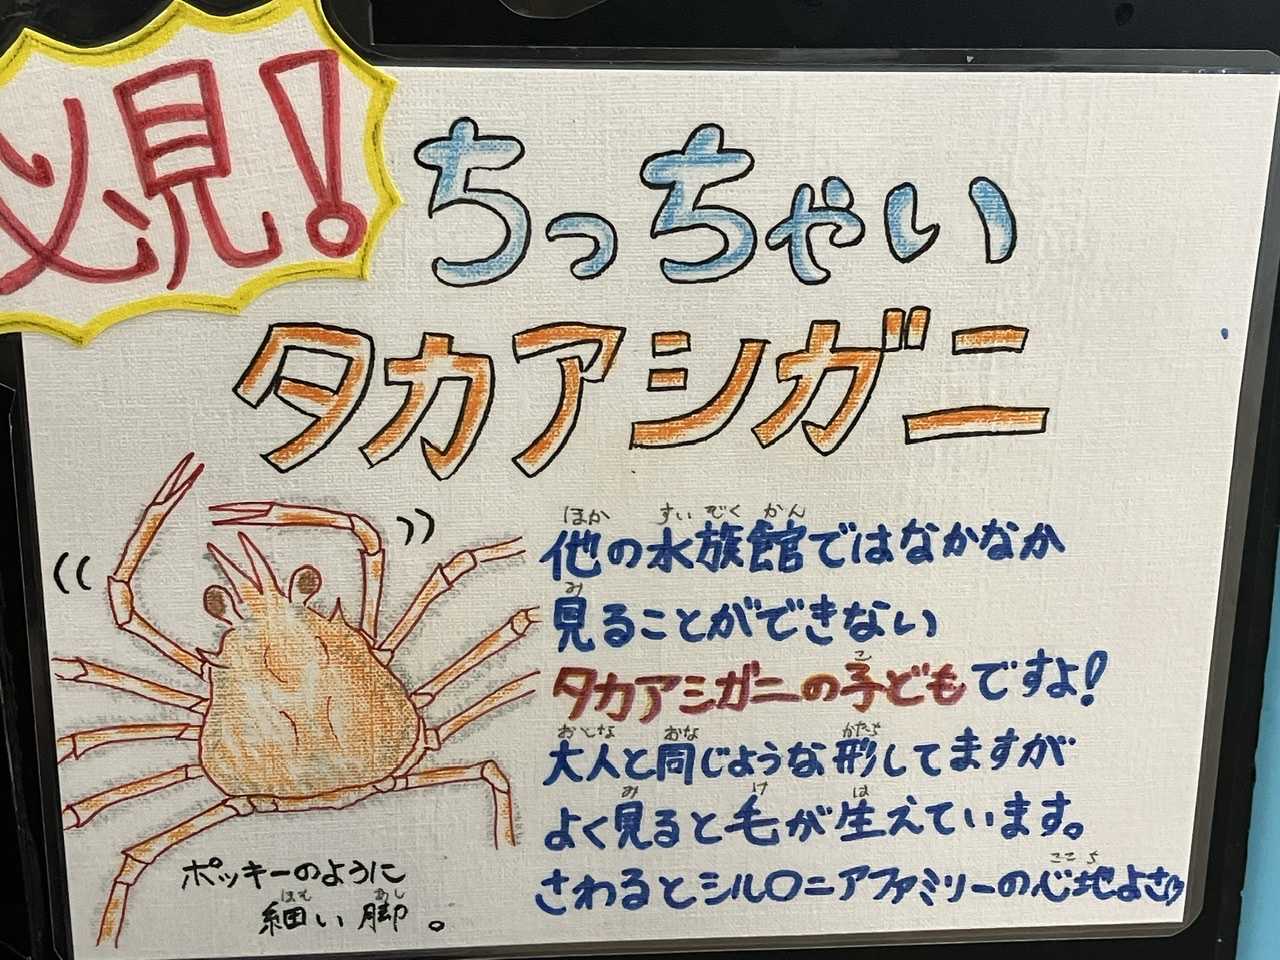 必見!
ちっちゃい
タカアシガニ
ほか すいぞくかん
他の水族館ではなかなか
み
見ることができない
こ
タカアシガニの子どもですよ!
おとな おな かたち
大人と同じような形してますが
み け は
よく見ると毛が生えています。
ここち
さわるとシル〇ニアファミリーの心地よさ♡
ポッキーのように
ほそ あし
細い脚。